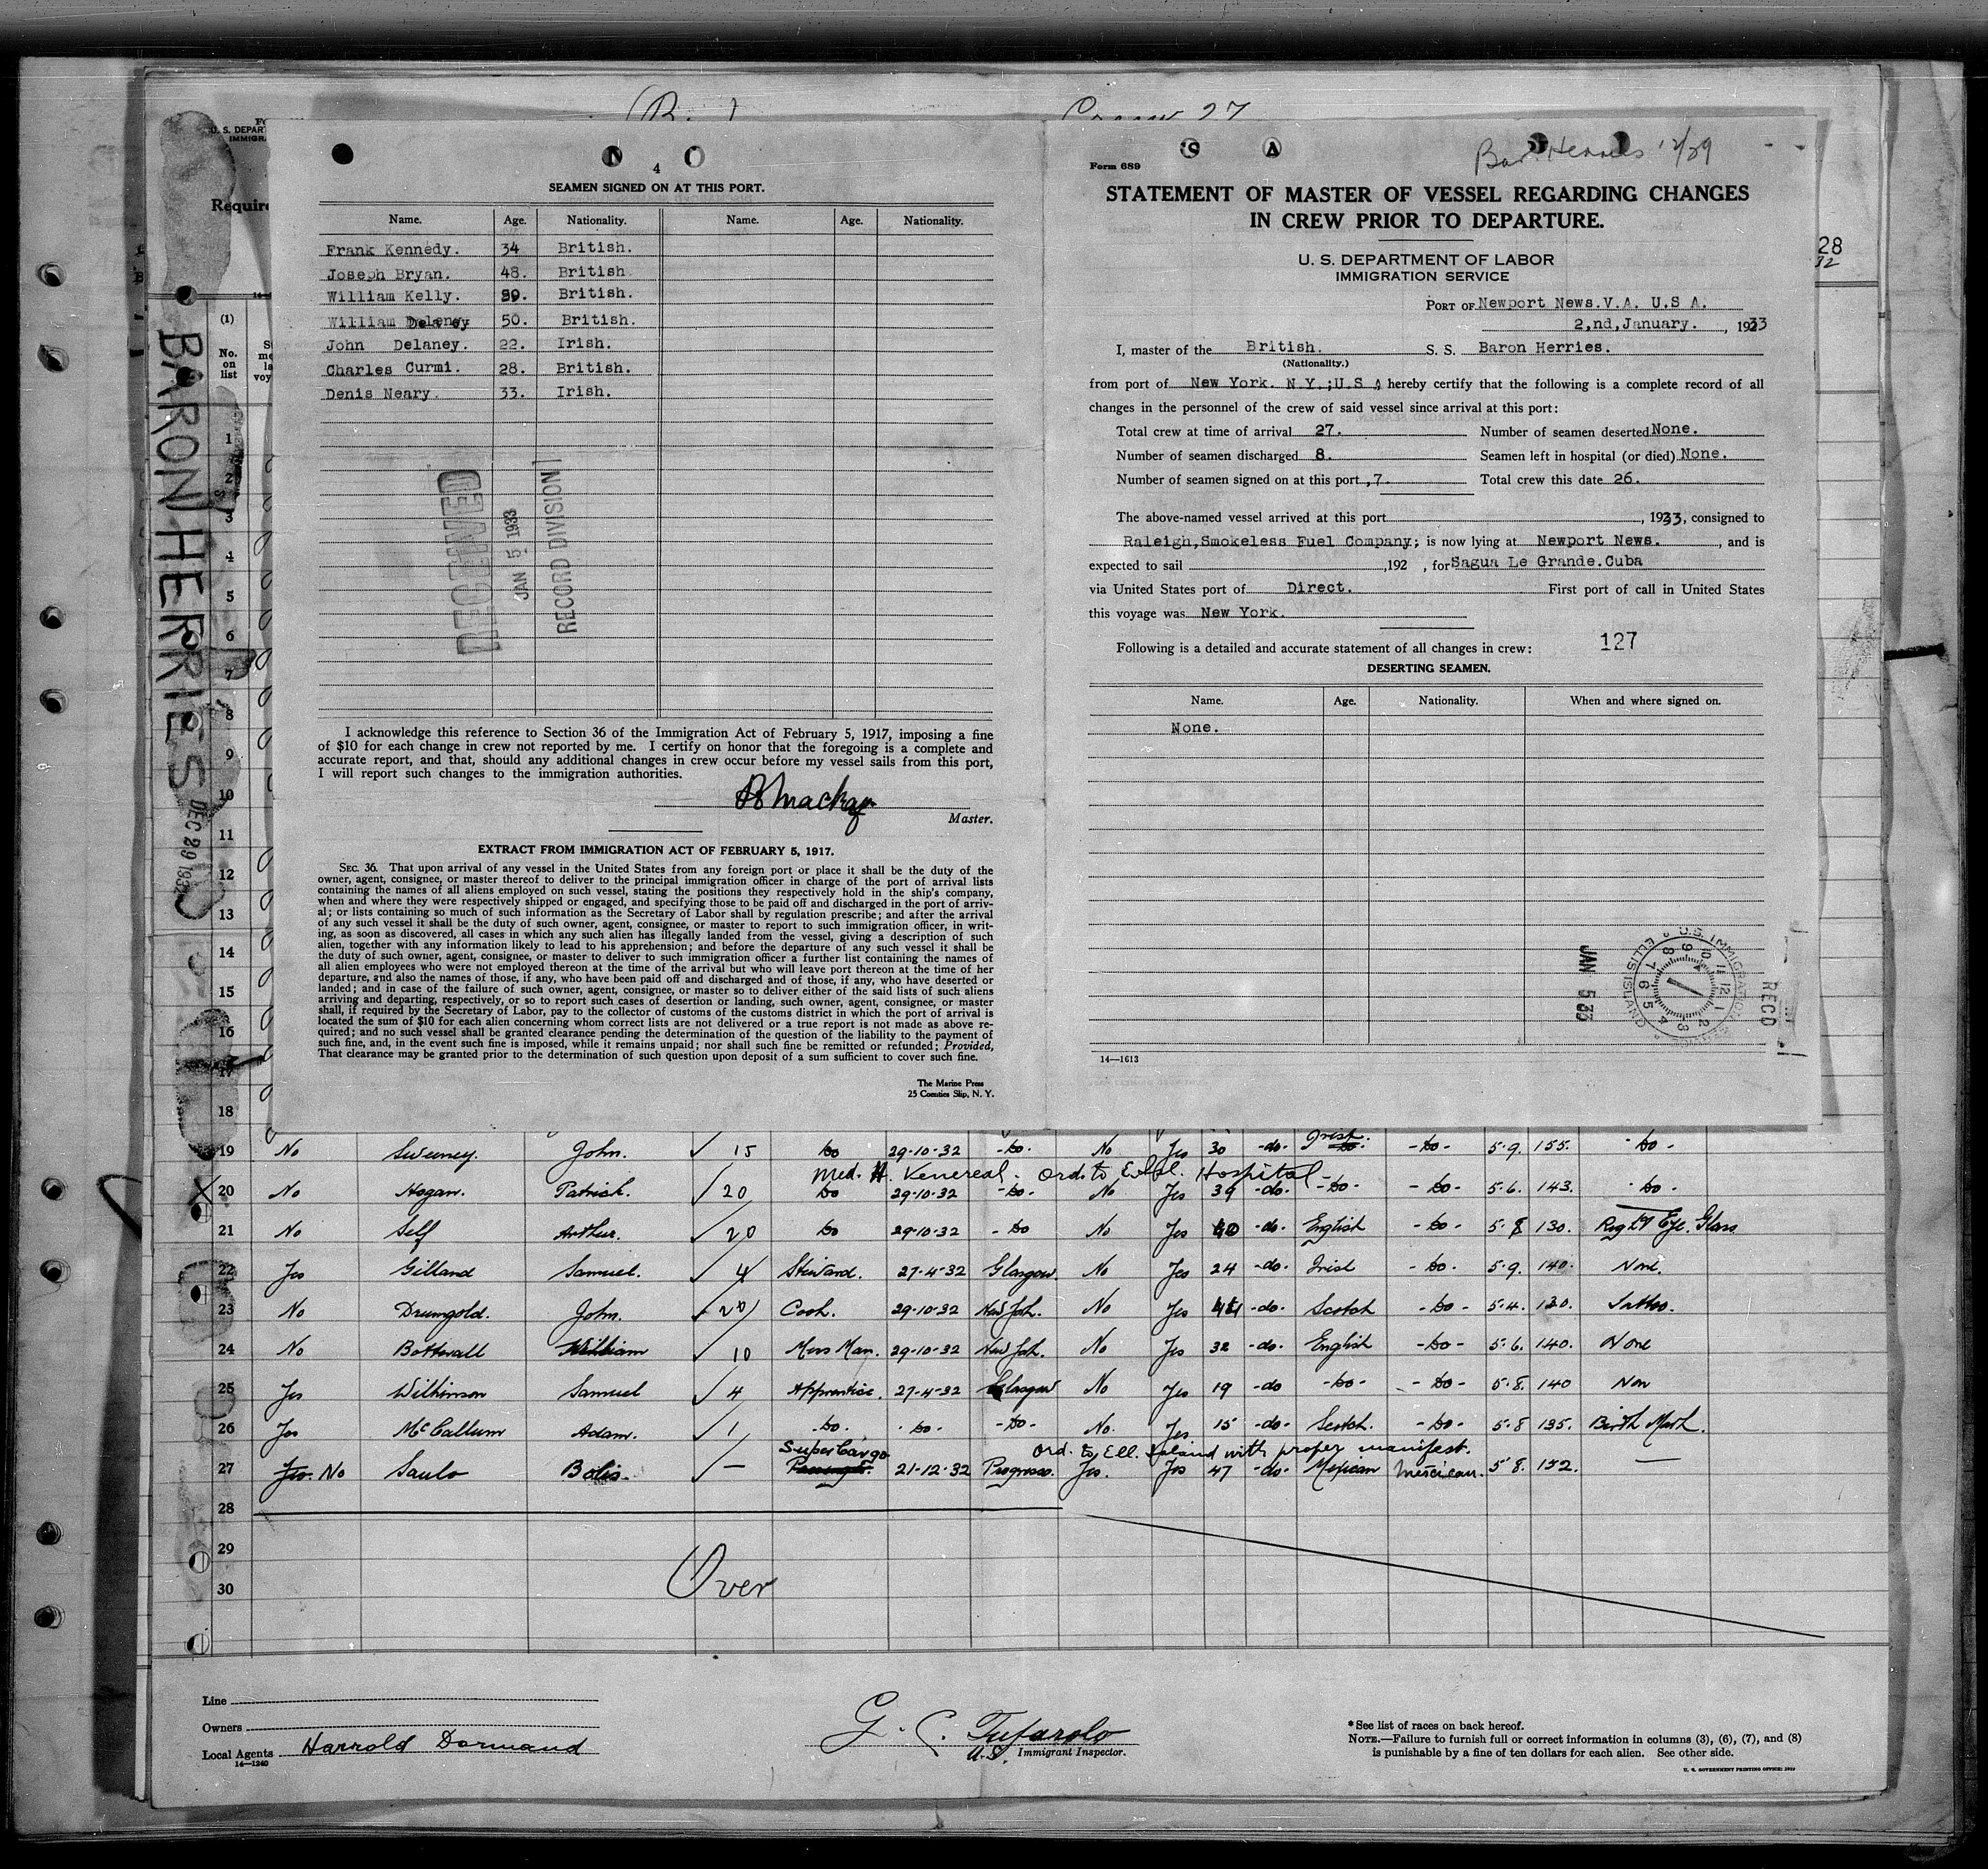 Form 689
Bar. Herries 12/29
BARON HERRIES
DEC 29 1932
Require
(1)
No.
on
list
4
SEAMEN SIGNED ON AT THIS PORT.
Name. Age. Nationality. Name. Age. Nationality.
Frank Kennedy. 34 British.
Joseph Bryan. 48. British
William Kelly. 39. British.
William Delaney 50. British.
John Delaney. 22. Irish.
Charles Curmi. 28. British.
Denis Neary. 33. Irish.
RECEIVED
JAN 5 1933
RECORD DIVISION
I acknowledge this reference to Section 36 of the Immigration Act of February 5, 1917, imposing a fine
of $10 for each change in crew not reported by me. I certify on honor that the foregoing is a complete and
accurate report, and that, should any additional changes in crew occur before my vessel sails from this port,
I will report such changes to the immigration authorities.
Mackay
Master.
EXTRACT FROM IMMIGRATION ACT OF FEBRUARY 5, 1917.
SEC. 36. That upon arrival of any vessel in the United States from any foreign port or place it shall be the duty of the
owner, agent, consignee, or master thereof to deliver to the principal immigration officer in charge of the port of arrival lists
containing the names of all aliens employed on such vessel, stating the positions they respectively hold in the ship's company,
when and where they were respectively shipped or engaged, and specifying those to be paid off and discharged in the port of arriv-
al; or lists containing so much of such information as the Secretary of Labor shall by regulation prescribe; and after the arrival
of any such vessel it shall be the duty of such owner, agent, consignee, or master to report to such immigration officer, in writ-
ing, as soon as discovered, all cases in which any such alien has illegally landed from the vessel, giving a description of such
alien, together with any information likely to lead to his apprehension; and before the departure of any such vessel it shall be
the duty of such owner, agent, consignee, or master to deliver to such immigration officer a further list containing the names of
all alien employees who were not employed thereon at the time of the arrival but who will leave port thereon at the time of her
departure, and also the names of those, if any, who have been paid off and discharged and of those, if any, who have deserted or
landed; and in case of the failure of such owner, agent, consignee, or master so to deliver either of the said lists of such aliens
arriving and departing, respectively, or so to report such cases of desertion or landing, such owner, agent, consignee, or master
shall, if required by the Secretary of Labor, pay to the collector of customs of the customs district in which the port of arrival is
located the sum of $10 for each alien concerning whom correct lists are not delivered or a true report is not made as above re-
quired; and no such vessel shall be granted clearance pending the determination of the question of the liability to the payment of
such fine, and, in the event such fine is imposed, while it remains unpaid; nor shall such fine be remitted or refunded; Provided,
That clearance may be granted prior to the determination of such question upon deposit of a sum sufficient to cover such fine.
The Marine Press
25 Coenties Slip, N. Y.
STATEMENT OF MASTER OF VESSEL REGARDING CHANGES
IN CREW PRIOR TO DEPARTURE.
U. S. DEPARTMENT OF LABOR
IMMIGRATION SERVICE
PORT OF Newport News.V.A. U.S A.
2,nd,January. , 1933
I, master of the British. S. S. Baron Herries.
(Nationality.)
from port of New York. N.Y.;U.S A hereby certify that the following is a complete record of all
changes in the personnel of the crew of said vessel since arrival at this port:
Total crew at time of arrival 27. Number of seamen deserted None.
Number of seamen discharged 8. Seamen left in hospital (or died) None.
Number of seamen signed on at this port ,7. Total crew this date 26.
The above-named vessel arrived at this port , 1933, consigned to
Raleigh,Smokeless Fuel Company; is now lying at Newport News. , and is
expected to sail ,192 , for Sagua Le Grande.Cuba
via United States port of Direct. First port of call in United States
this voyage was New York.
Following is a detailed and accurate statement of all changes in crew: 127
DESERTING SEAMEN.
Name. Age. Nationality. When and where signed on.
None.
JAN 5 33
U.S. IMMIGRATION
ELLIS ISLAND
RECD
14—1613
28
32
1
2
3
4
5
6
7
8
9
10
11
12
13
14
15
16
17
18
19 No Sweeney. John. ✓ 15 do 29-10-32 -do- No Yes 30 -do- Irish. -do- 5-9. 155. -do-
Med. H. Venereal. ord. to Hospital
20 No Hogan. Patrick. ✓ 20 do 29-10-32 -do- No Yes 39 -do- -do- -do- 5-6. 143. -do-
21 No Self Arthur. ✓ 20 do 29-10-32 -do No Yes 40 -do- English -do- 5-8 130. Right Eye. Glass
22 Yes Gilland Samuel. ✓ 4 Steward. 27-4-32 Glasgow. No Yes 24 -do- Irish -do- 5-9. 140. None.
23 No Drumgold. John. ✓ 20 Cook. 29-10-32 New York. No Yes -do- Scotch -do- 5-4. 130. Tattoo.
24 No Botterall William ✓ 10 Mess Man. 29-10-32 New York. No Yes 32 -do- English -do- 5-6. 140. None
25 Yes Wilkinson Samuel ✓ 4 Apprentice. 27-4-32 Glasgow No Yes 19 -do -do- -do- 5-8. 140 Non
26 Yes McCallum Adam. ✓ 1 -do. -do- -do- No. Yes 15 -do- Scotch. -do- 5-8 135. Birth Mark.
Supercargo ord. to Ell. Island with proper manifest.
27 Yes. No Saulo Bolis. ✓ — Passenger. 21-12-32 Progreso. Yes. Yes 47 -do- Mexican Mexican. 5-8. 152. —
28
29
30
Over
Line
Owners
Local Agents Harrold Dormand
14—1240
G. C. Tufarolo
U.S. Immigrant Inspector.
*See list of races on back hereof.
NOTE.—Failure to furnish full or correct information in columns (3), (6), (7), and (8)
is punishable by a fine of ten dollars for each alien. See other side.
U. S. GOVERNMENT PRINTING OFFICE: 1929